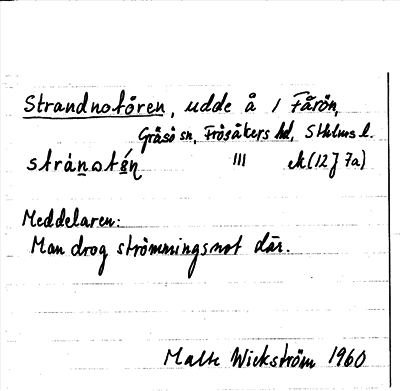 Strandnotören, udde å 1 Fårön,
Gräsö sn, Frösåkers hd, Sthlms l.
strànotə́n III ek (12J 7a)
Meddelaren:
Man drog strömmingsnot där.
Malte Wickström 1960